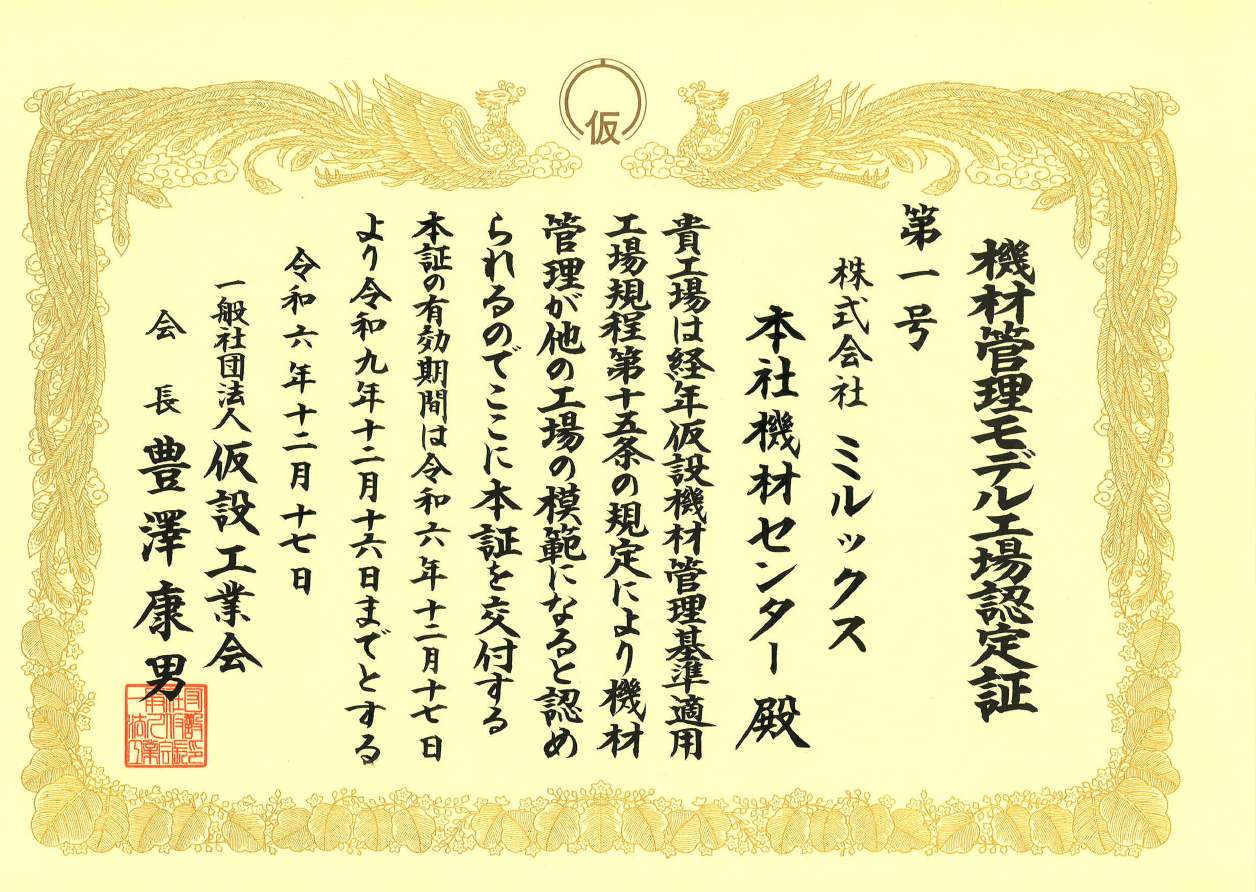 仮
機材管理モデル工場認定証
第一号
株式会社 ミルックス
本社機材センター 殿
貴工場は経年仮設機材管理基準適用
工場規程第十五条の規定により機材
管理が他の工場の模範になると認め
られるのでここに本証を交付する
本証の有効期間は令和六年十二月十七日
より令和九年十二月十六日までとする
令和六年十二月十七日
一般社団法人 仮設工業会
会長 豊澤康男